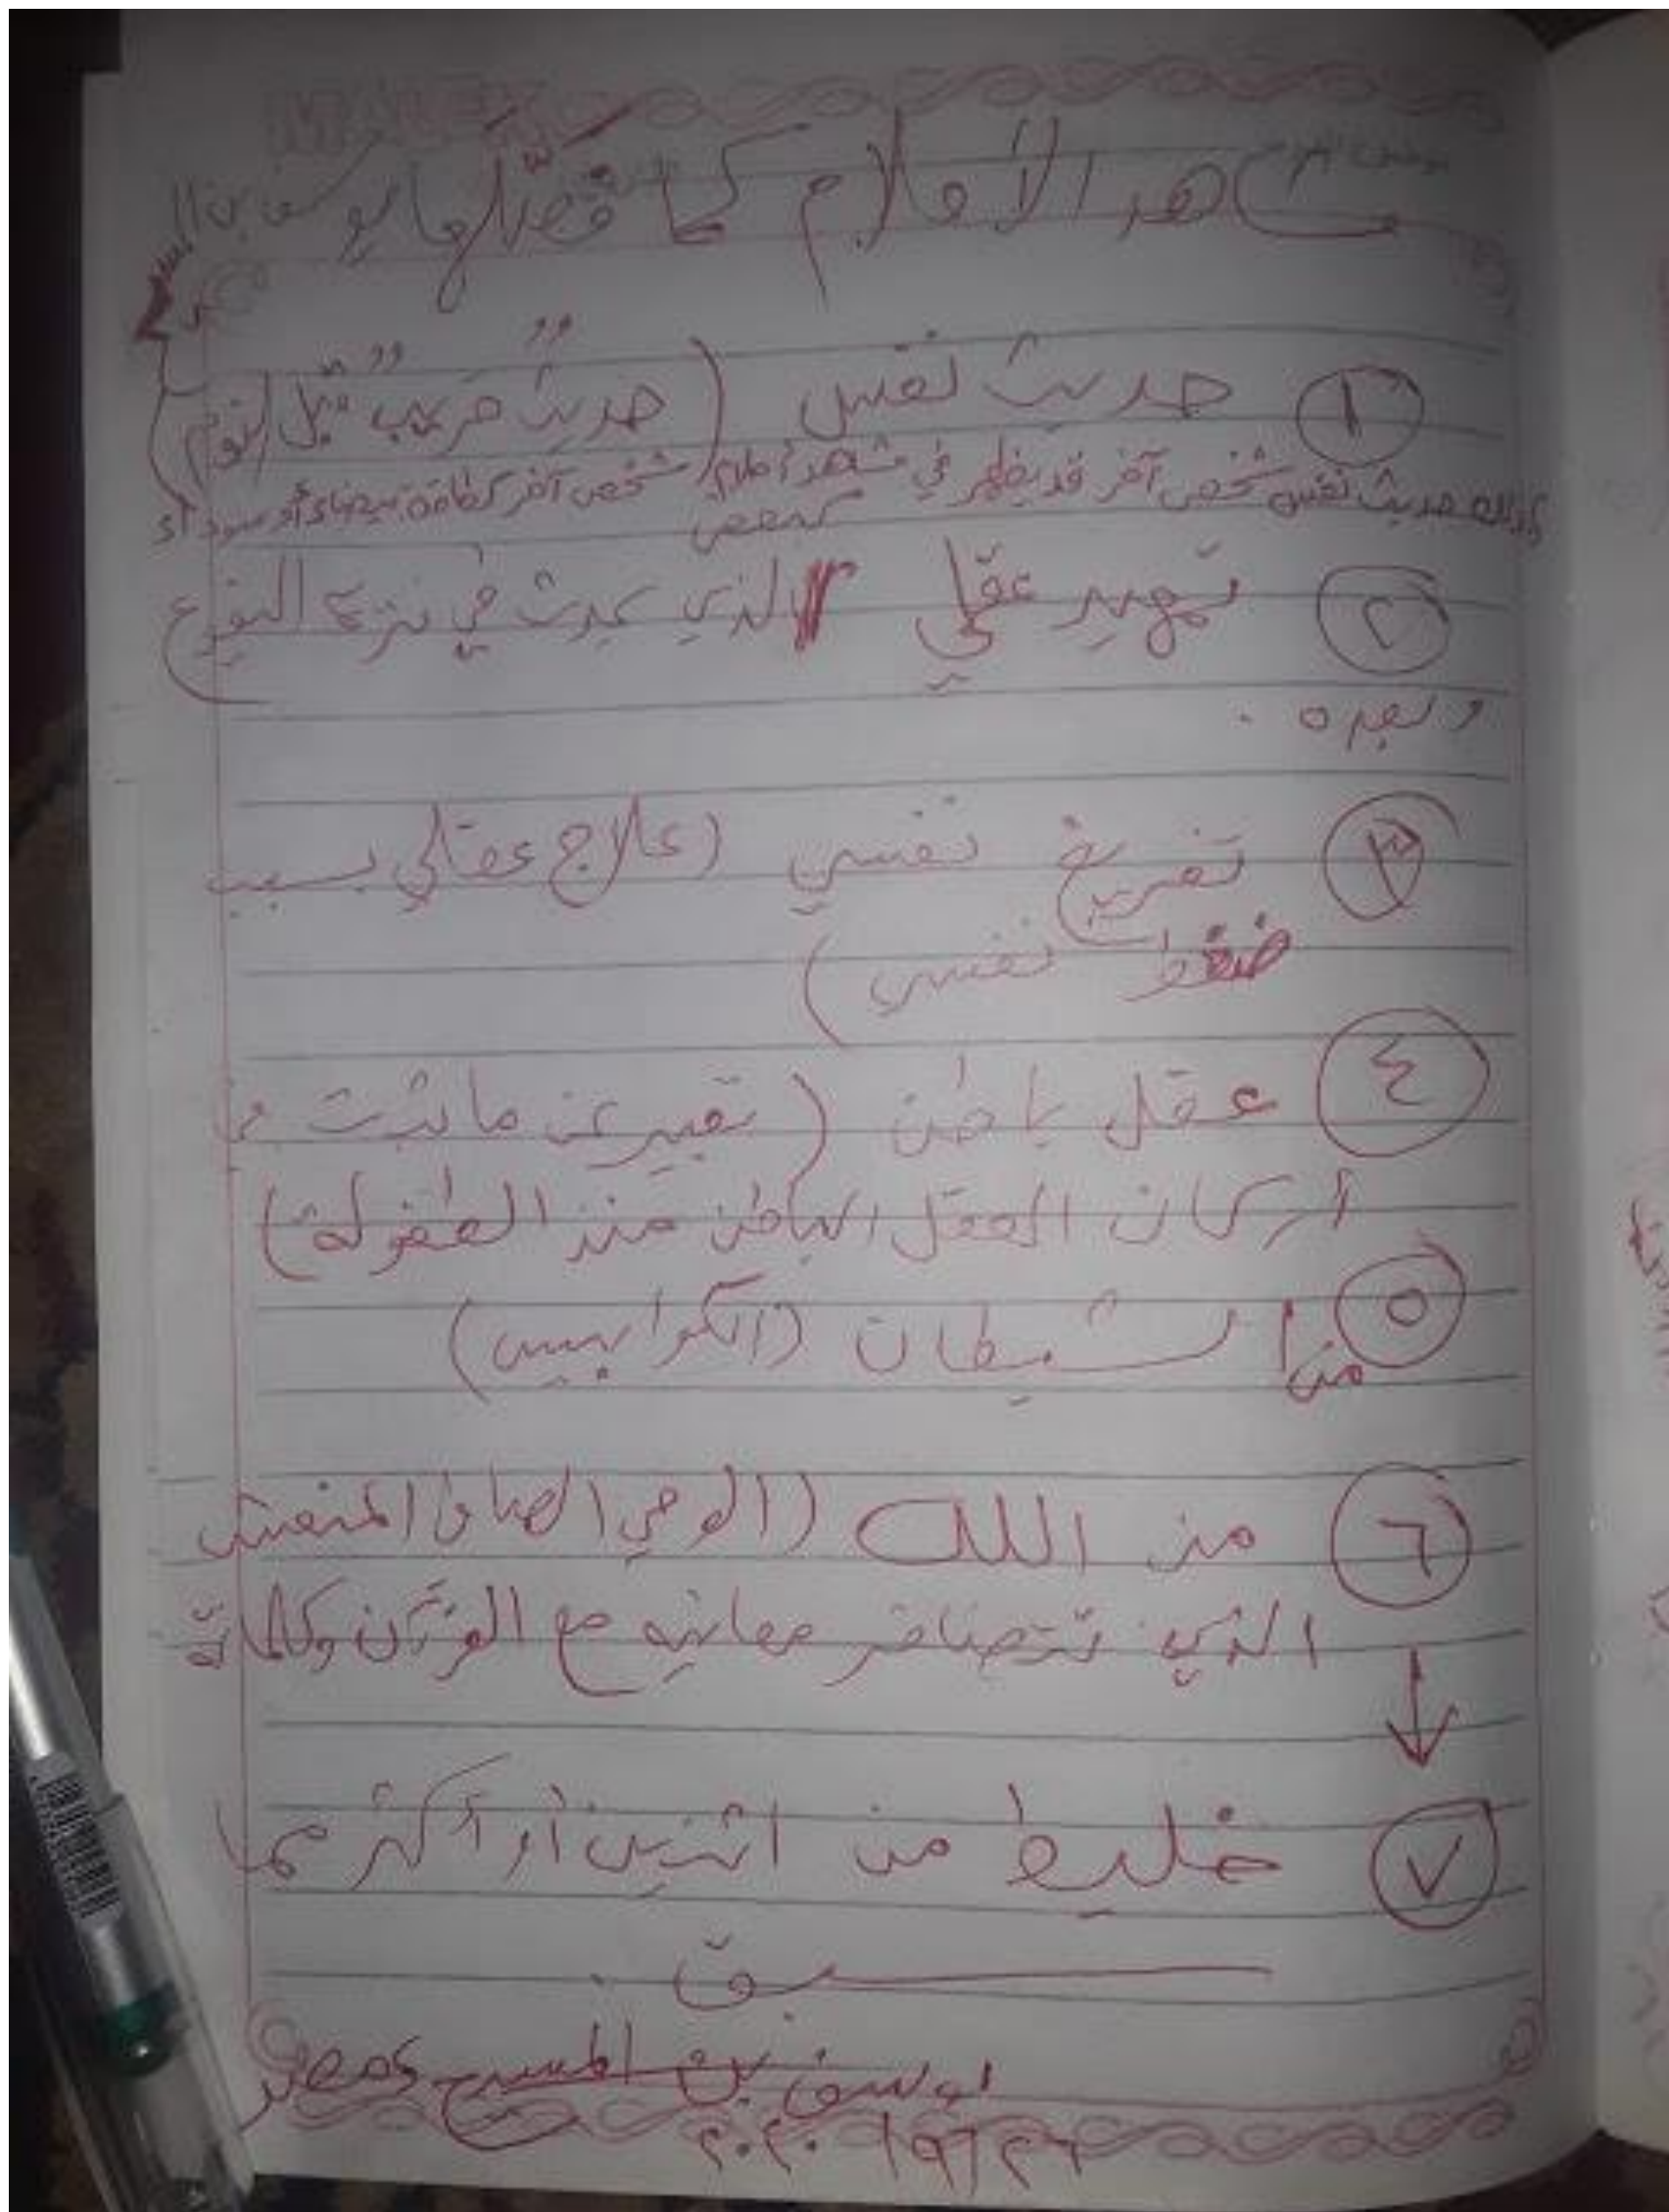 مشاهد الأحلام كما فصّلها يوسف بن المسيح
١ حديث نفس (حديثٌ قريبٌ قبل النوم)
كذلك حديث نفس شخص آخر قد يظهر في مشهد أحلام شخص آخر كطاقة بيضاء أو سوداء
كتقمص
٢ تمهيد عقلي (الذي يحدث في نزعة التبوّل
وغيره .
٣ تفريغ نفسي (علاج عقلي بسبب
ضغط نفسي)
٤ عقل باطن (تعبير عن ما ثبت في
أركان العقل الباطن منذ الطفولة)
٥ من الشيطان (الكوابيس)
٦ من الله (الوحي الصافي المنعش
الذي تتضافر معانيه مع القرآن وكلماته
٧ خليط من اثنين أو أكثر مما
سبق .
يوسف بن المسيح مصر
٢٠٢٠/٩/٢٦